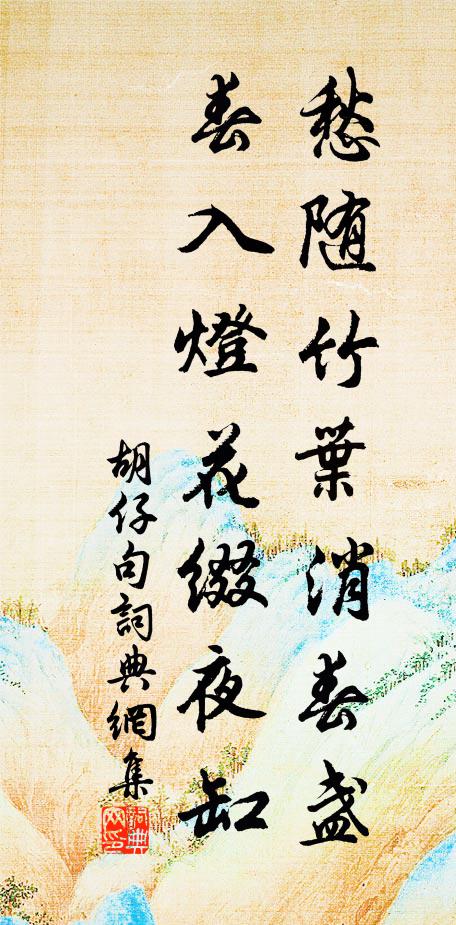 愁随竹葉消春盏
春入燈花綴夜缸
胡仔句詞典網集
詞典网印